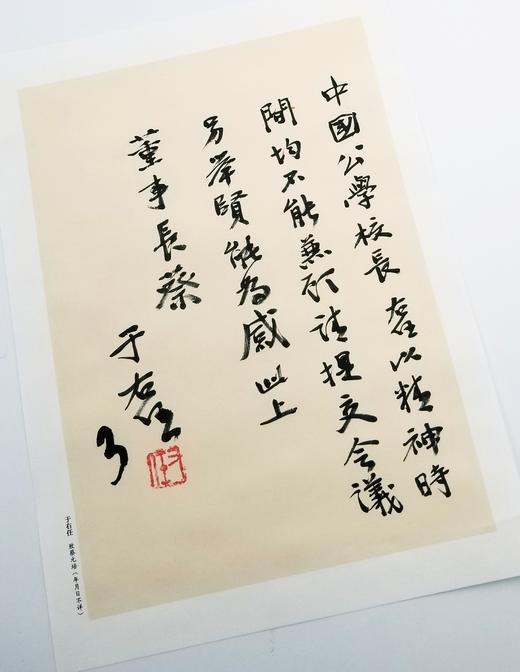 中國公學校長右任以精神時
間均不能兼顧請提交會議
另舉賢能為感此上
董事長蔡
于右任
于右任 致蔡元培（年月日不詳）